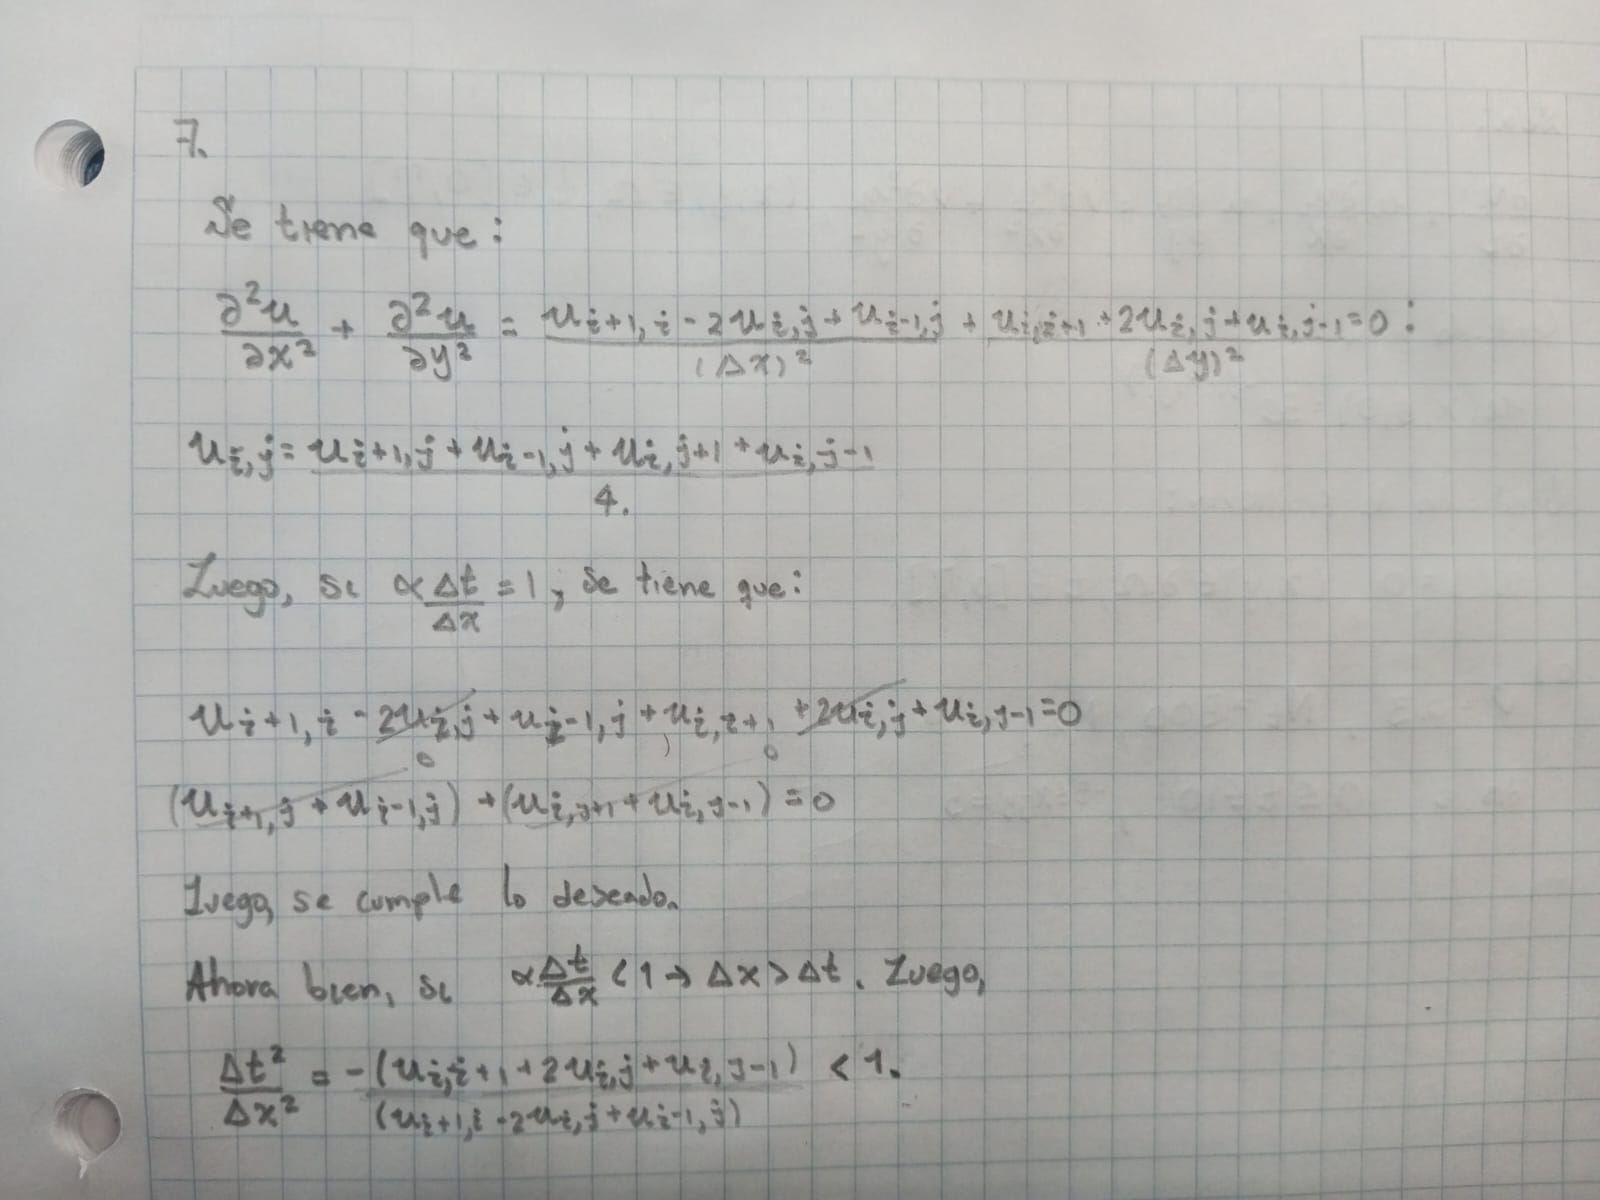 7.
Se tiene que:
∂²u/∂x² + ∂²u/∂y² = (u_{i+1,i} - 2u_{i,j} + u_{i-1,j})/(Δx)² + (u_{i,i+1} + 2u_{i,j} + u_{i,j-1})/(Δy)² = 0:
u_{i,j} = (u_{i+1,j} + u_{i-1,j} + u_{i,j+1} + u_{i,j-1})/4.
Luego, si α Δt/Δx = 1, se tiene que:
u_{i+1,i} - 2u_{i,j} + u_{i-1,j} + u_{i,i+1} + 2u_{i,j} + u_{i,j-1} = 0
0 0
(u_{i+1,j} + u_{i-1,j}) + (u_{i,j+1} + u_{i,j-1}) = 0
Luego, se cumple lo deseado.
Ahora bien, si α Δt/Δx < 1 → Δx > Δt. Luego,
Δt²/Δx² = -(u_{i,i+1} + 2u_{i,j} + u_{i,j-1})/(u_{i+1,i} - 2u_{i,j} + u_{i-1,j}) < 1.